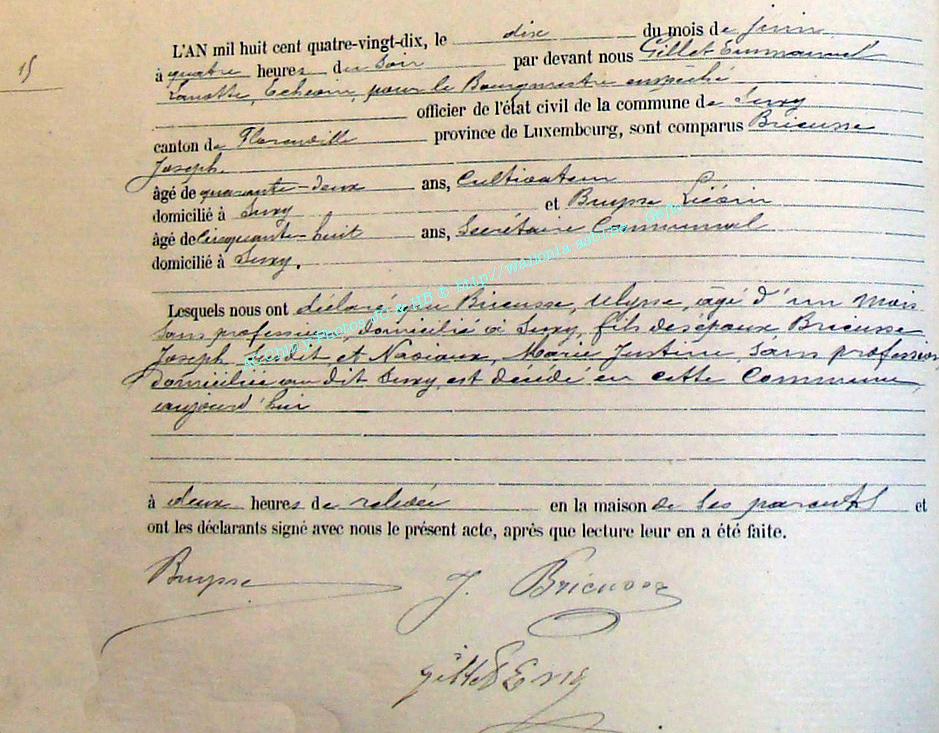 15
L'AN mil huit cent quatre-vingt-dix, le dix du mois de juin
à quatre heures du Soir par devant nous Gillet Emmanuel
Echevin, pour le Bourgmestre empêché
officier de l'état civil de la commune de Suxy
canton de Florenville province de Luxembourg, sont comparus Bricusse
Joseph.
âgé de quarante-deux ans, Cultivateur
domicilié à Suxy et Buysse
âgé de Cinquante-huit ans, Secrétaire Communal
domicilié à Suxy.
Lesquels nous ont déclaré que Bricusse, Ulysse, âgé d'un mois
sans profession, domicilié à Suxy, fils des époux Bricusse
Joseph susdit et Marie Justine, sans profession
domiciliée au dit Suxy, est décédé en cette Commune,
aujourd'hui
à deux heures de relevée en la maison de ses parents et
ont les déclarants signé avec nous le présent acte, après que lecture leur en a été faite.
Buysse J. Bricusse
Gillet Em
Photos JC & HB © http://wallonia.asbl.be